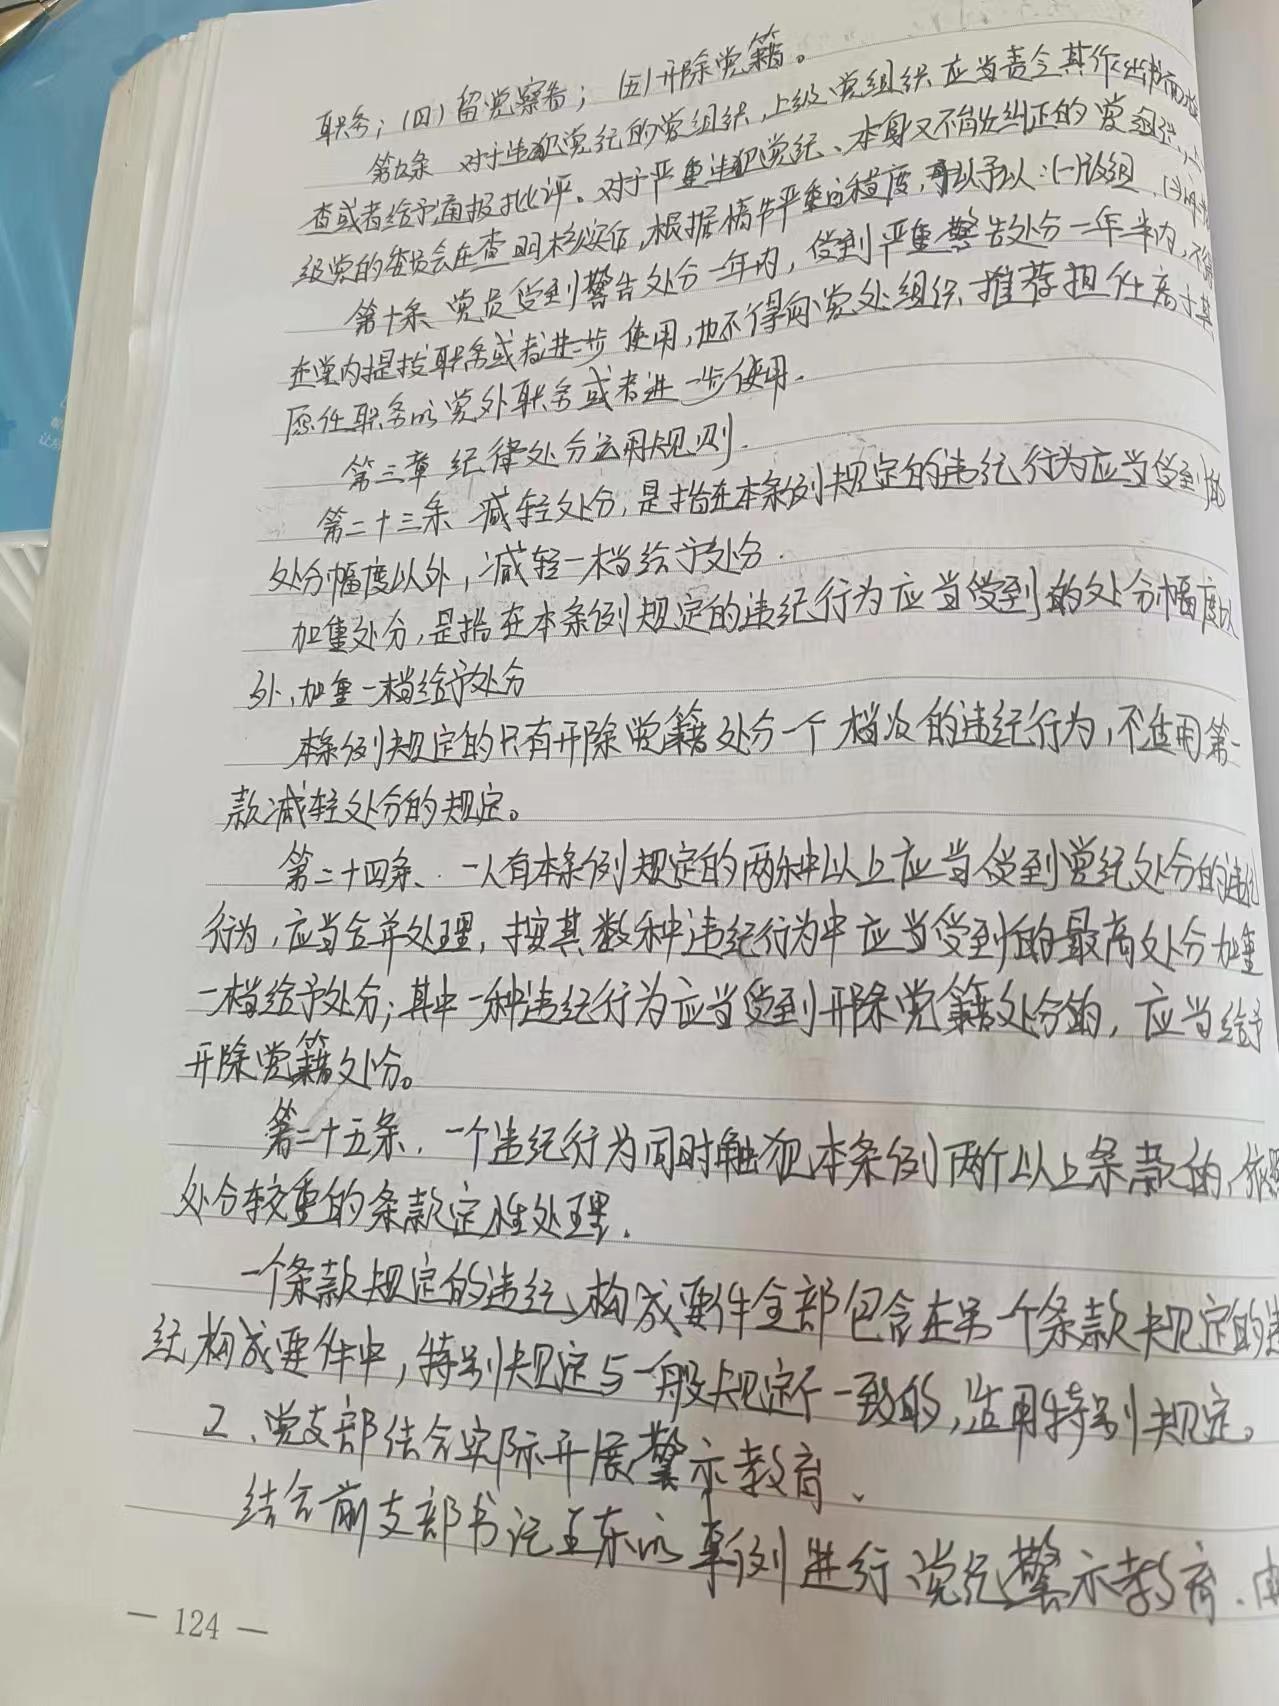 职务；(四)留党察看；(五)开除党籍。
第九条 对于违犯党纪的党组织，上级党组织应当责令其作出书面检
查或者给予通报批评。对于严重违犯党纪、本身又不能纠正的党组织，上
级党的委员会在查明核实后，根据情节严重的程度，可以予以：(一)改组
第十条、党员受到警告处分一年内，受到严重警告处分一年半内，不得
在党内提拔职务或者进一步使用，也不得向党外组织推荐担任高于其
原任职务的党外职务或者进一步使用.
第三章 纪律处分运用规则.
第二十三条、减轻处分，是指在本条例规定的违纪行为应当受到的
处分幅度以外，减轻一档给予处分.
加重处分，是指在本条例规定的违纪行为应当受到的处分幅度以
外，加重一档给予处分
本条例规定的只有开除党籍处分一个档次的违纪行为，不适用第一
款减轻处分的规定。
第二十四条、一人有本条例规定的两种以上应当受到党纪处分的违纪
行为，应当合并处理，按其数种违纪行为中应当受到的最高处分加重
一档给予处分；其中一种违纪行为应当受到开除党籍处分的，应当给予
开除党籍处分。
第二十五条、一个违纪行为同时触犯本条例两个以上条款的，依照
处分较重的条款定性处理.
一个条款规定的违纪构成要件全部包含在另一个条款规定的违
纪构成要件中，特别规定与一般规定不一致的，适用特别规定。
2、党支部结合实际开展警示教育、
结合前支部书记王东的事例进行党纪警示教育、
— 124 —